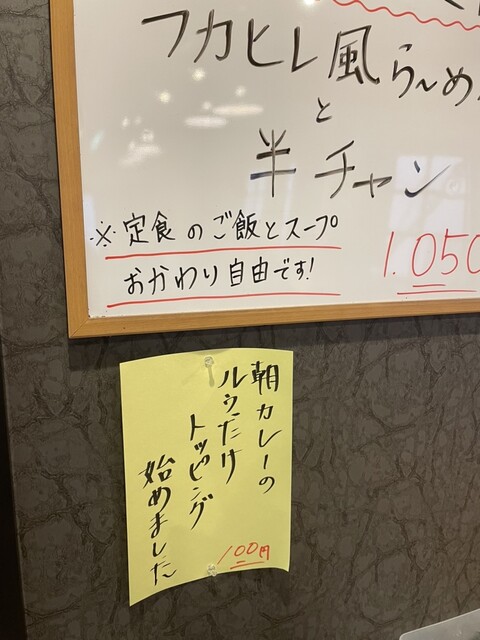 フカヒレ風らーめ
と
半チャン
※定食のご飯とスープ
おかわり自由です!
1.050
朝カレーの
ルウだけ
トッピング
始めました
100円